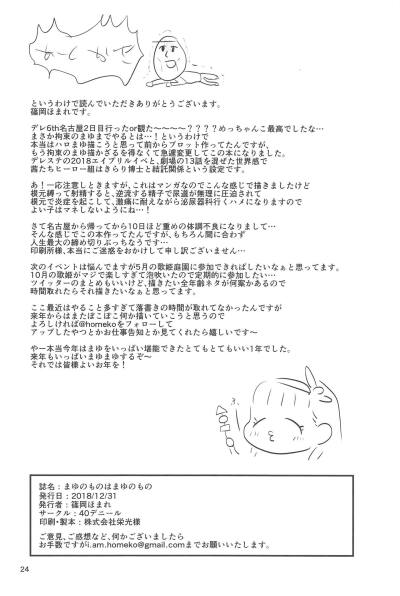 というわけで読んでいただきありがとうございます。
篠岡ほまれです。
デレ6th名古屋2日目行ったor観た～～～～？？？？めっちゃんこ最高でしたな…
まさか拘束のまゆまでやるとは…！というわけで
本当はハロまゆ描こうと思って前からプロット作ってたんですが、
もう拘束のまゆ描かざるを得なくて急遽変更してこの本になりました。
デレステの2018エイプリルイベと、劇場の13話を混ぜた世界感で
茜たちヒーロー組はきらり博士と結託関係という設定です。
あ！一応注意しときますが、これはマンガなのでこんな感じで描きましたけど
根元縛って射精すると、逆流する精子で尿道が無理に圧迫されて
根元で炎症を起して、激痛に耐えながら泌尿器科行くハメになりますので
よい子はマネしないようにね…！
さて名古屋から帰ってから10日ほど重めの体調不良になりまして…
そんな感じでこの本作ってたんですが、もちろん間に合わず
人生最大の締め切りぶっちなうです…
印刷所様、本当にご迷惑をおかけして申し訳ございません…
次のイベントは悩んでますが5月の歌姫庭園に参加できればしたいなぁと思ってます。
10月の歌姫がマジで楽しすぎて泡吹いたので定期的に参加したい…
ツイッターのまとめもいいけど、描きたい全年齢ネタが何案かあるので
時間取れたらそれ描きたいなぁと思ってます。
ここ最近はやること多すぎて落書きの時間が取れてなかったんですが
来年からはまたぽこぽこ何か描いていこうと思うので
よろしければ@homekoをフォローして
アップしたやつとかお仕事告知とか見てくれたら嬉しいです～
や一本当今年はまゆをいっぱい堪能できたとてもとてもいい1年でした。
来年もいっぱいまゆまゆするぞ～
それでは皆様よいお年を！
誌名：まゆのものはまゆのもの
発行日：2018/12/31
発行者：篠岡ほまれ
サークル：40デニール
印刷・製本：株式会社栄光様
ご意見、ご感想など、何かございましたら
お手数ですがi.am.homeko@gmail.comまでお願いいたします。
24